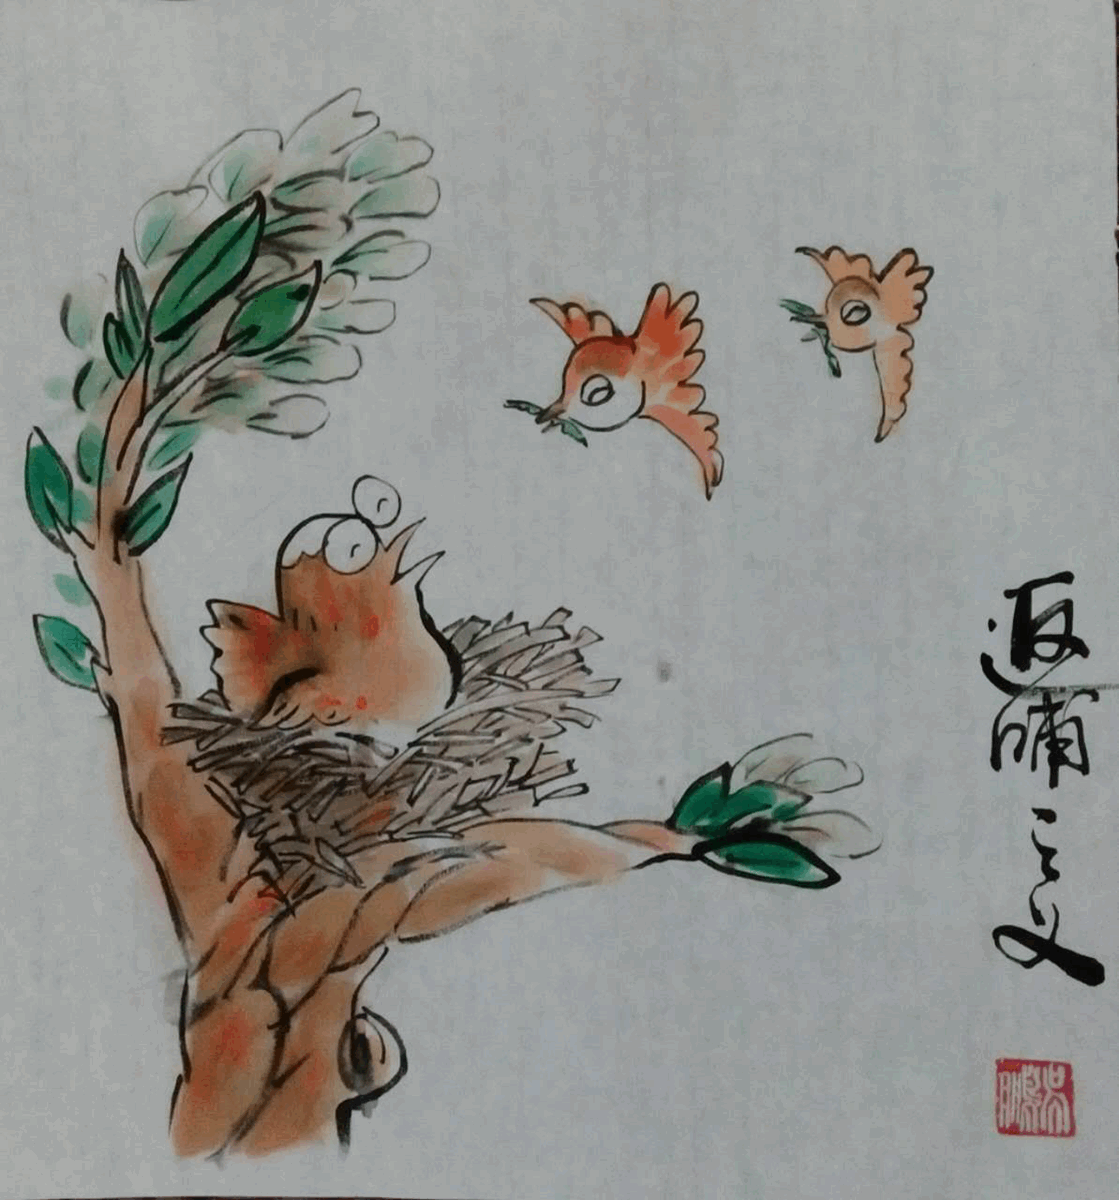 返哺之义